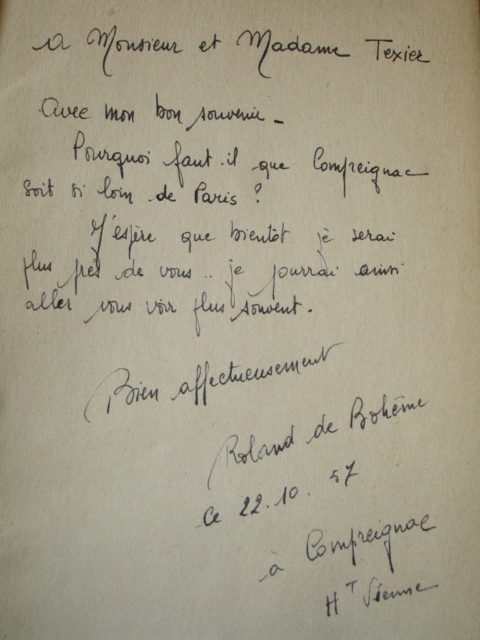 a Monsieur et Madame Texier
Avec mon bon souvenir _
Pourquoi faut-il que Compreignac
soit si loin de Paris ?
J'espère que bientôt je serai
plus près de vous .. je pourrai ainsi
aller vous voir plus souvent.
Bien affectueusement
Roland de Bohême
ce 22.10.57
à Compreignac
HT Vienne